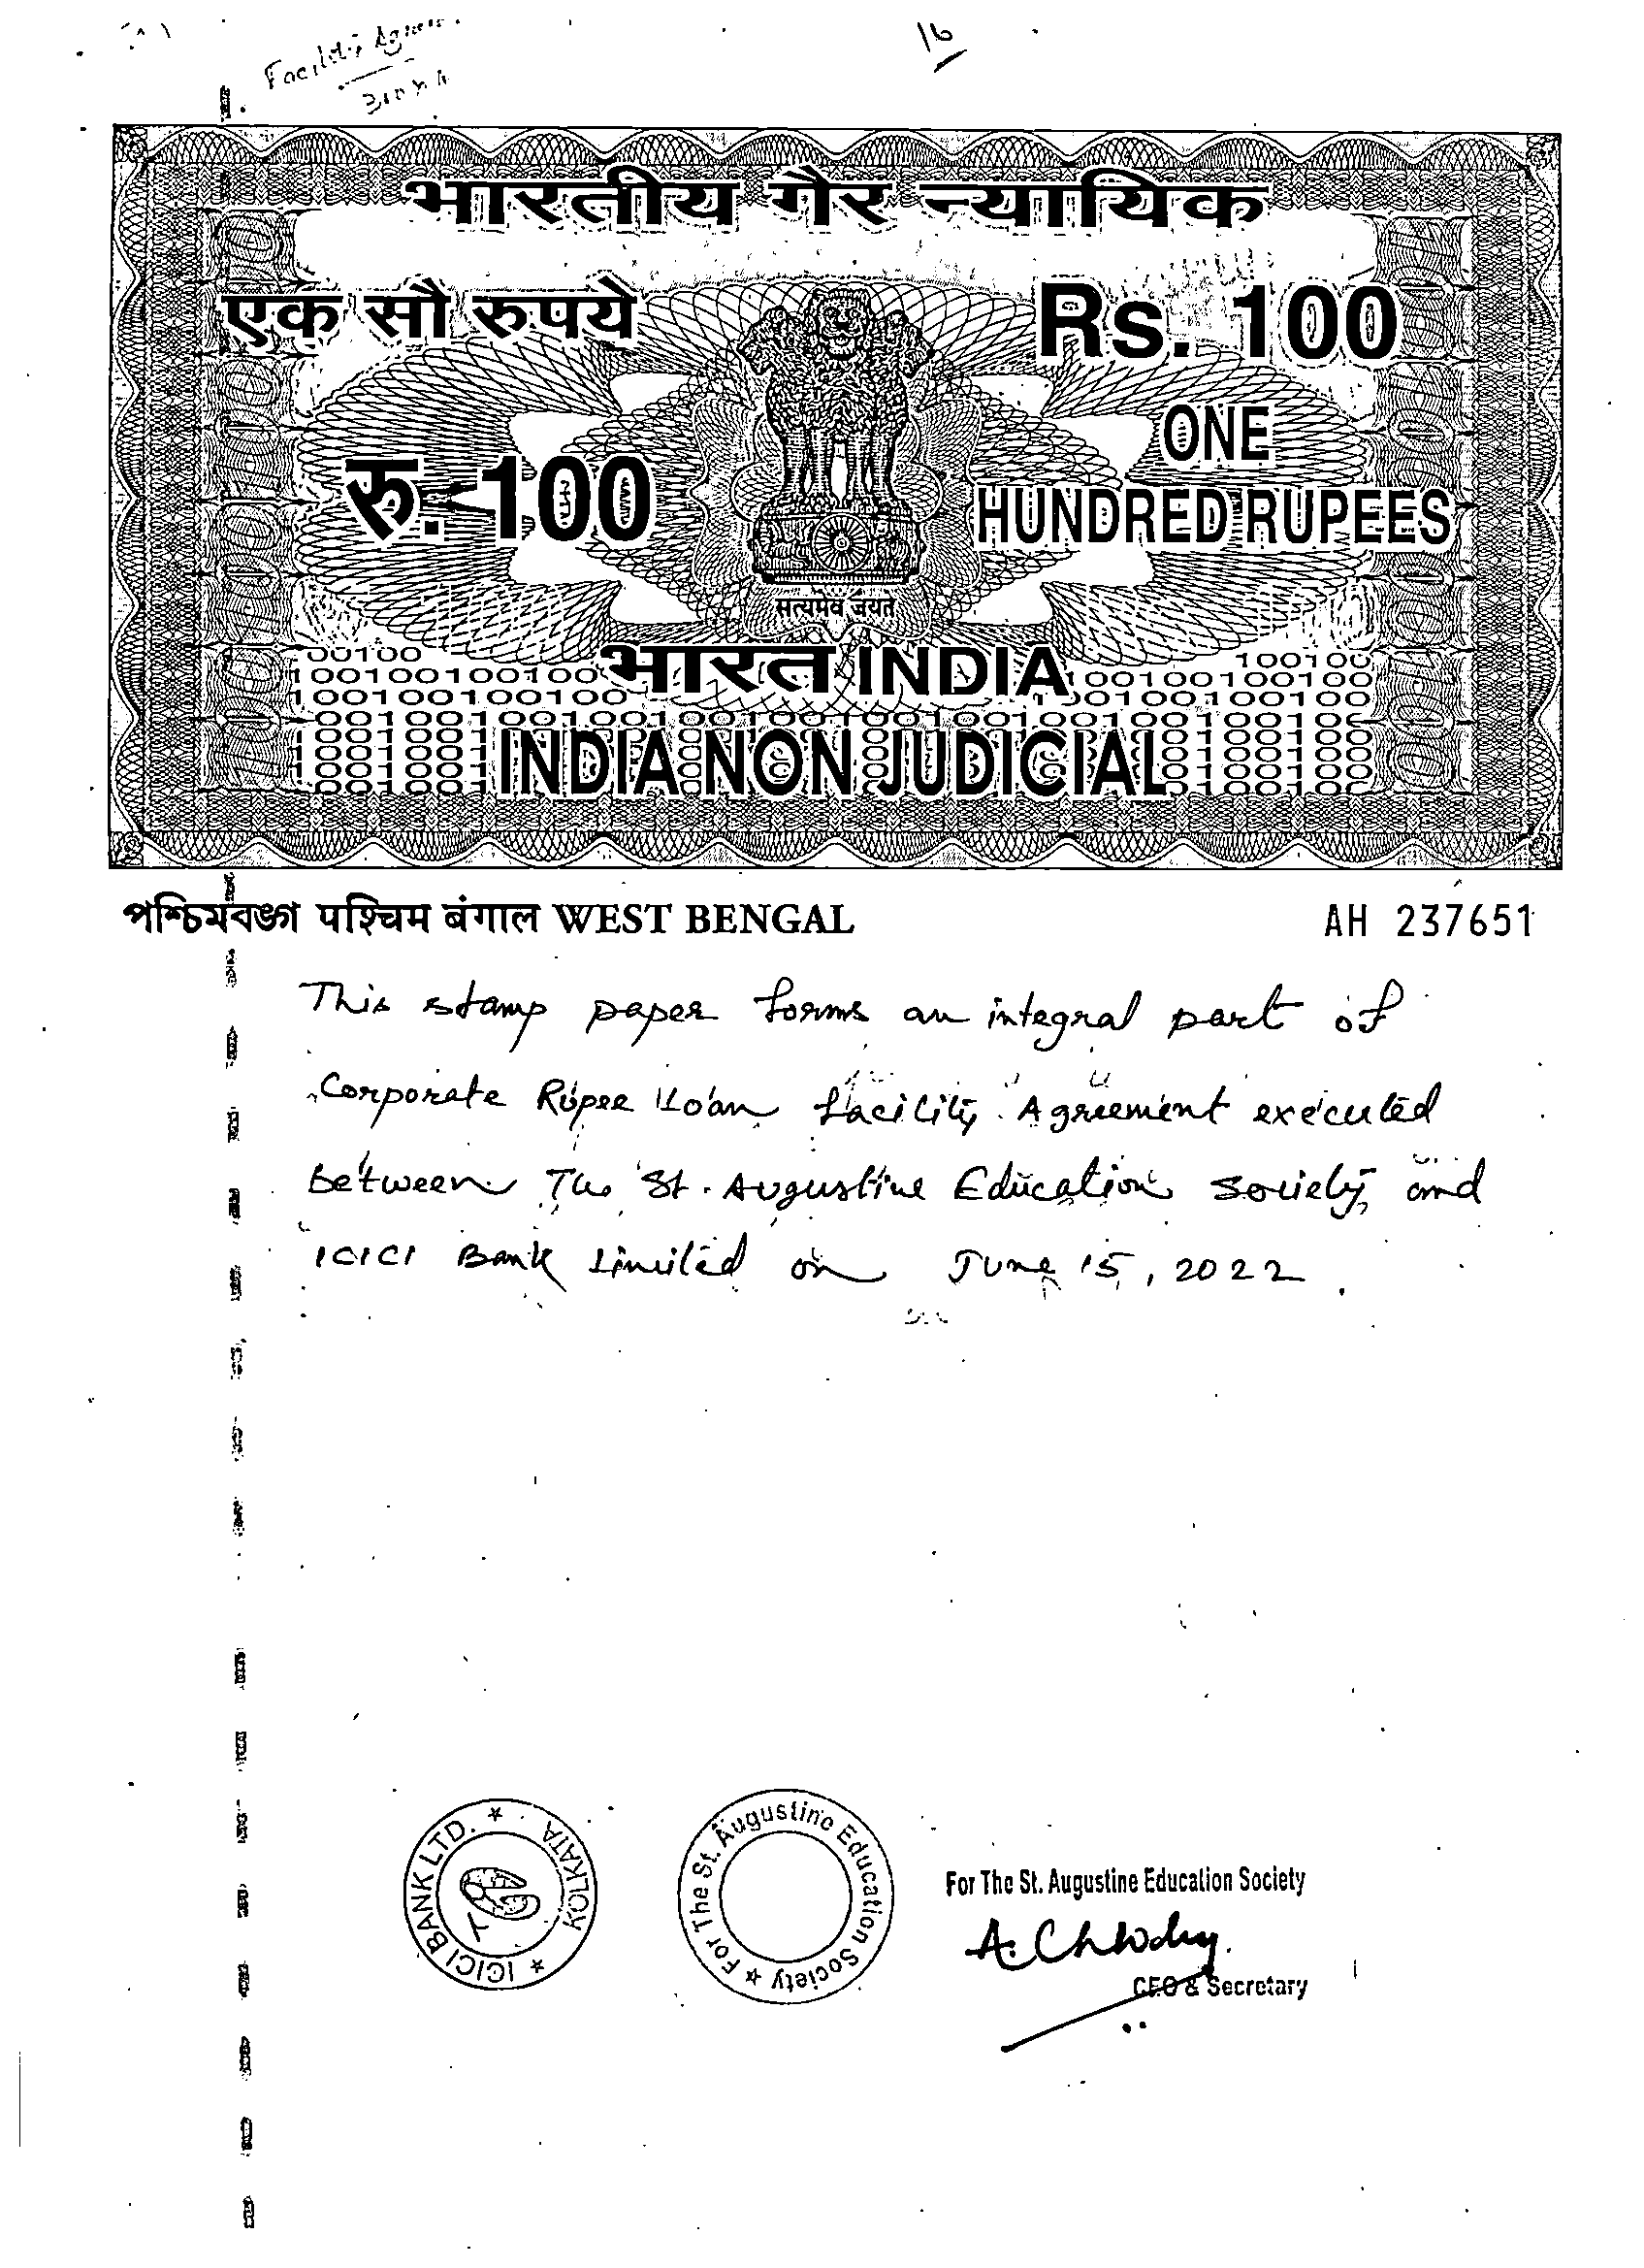 Facility
16
भारतीय गैर न्यायिक
एक सौ रुपये
Rs. 100
रु. 100
ONE
HUNDRED RUPEES
सत्यमेव जयते
भारत INDIA
INDIA NON JUDICIAL
পশ্চিমবঙ্গ पश्चिम बंगाल WEST BENGAL
AH 237651
This stamp paper forms an integral part of
Corporate Rupee Loan facility Agreement executed
between The St. Augustine Education Society and
ICICI Bank Limited on June 15, 2022.
ICICI BANK LTD. ★ KOLKATA ★
For The St. Augustine Education Society ★
For The St. Augustine Education Society
A. Chowdhry
CEO & Secretary